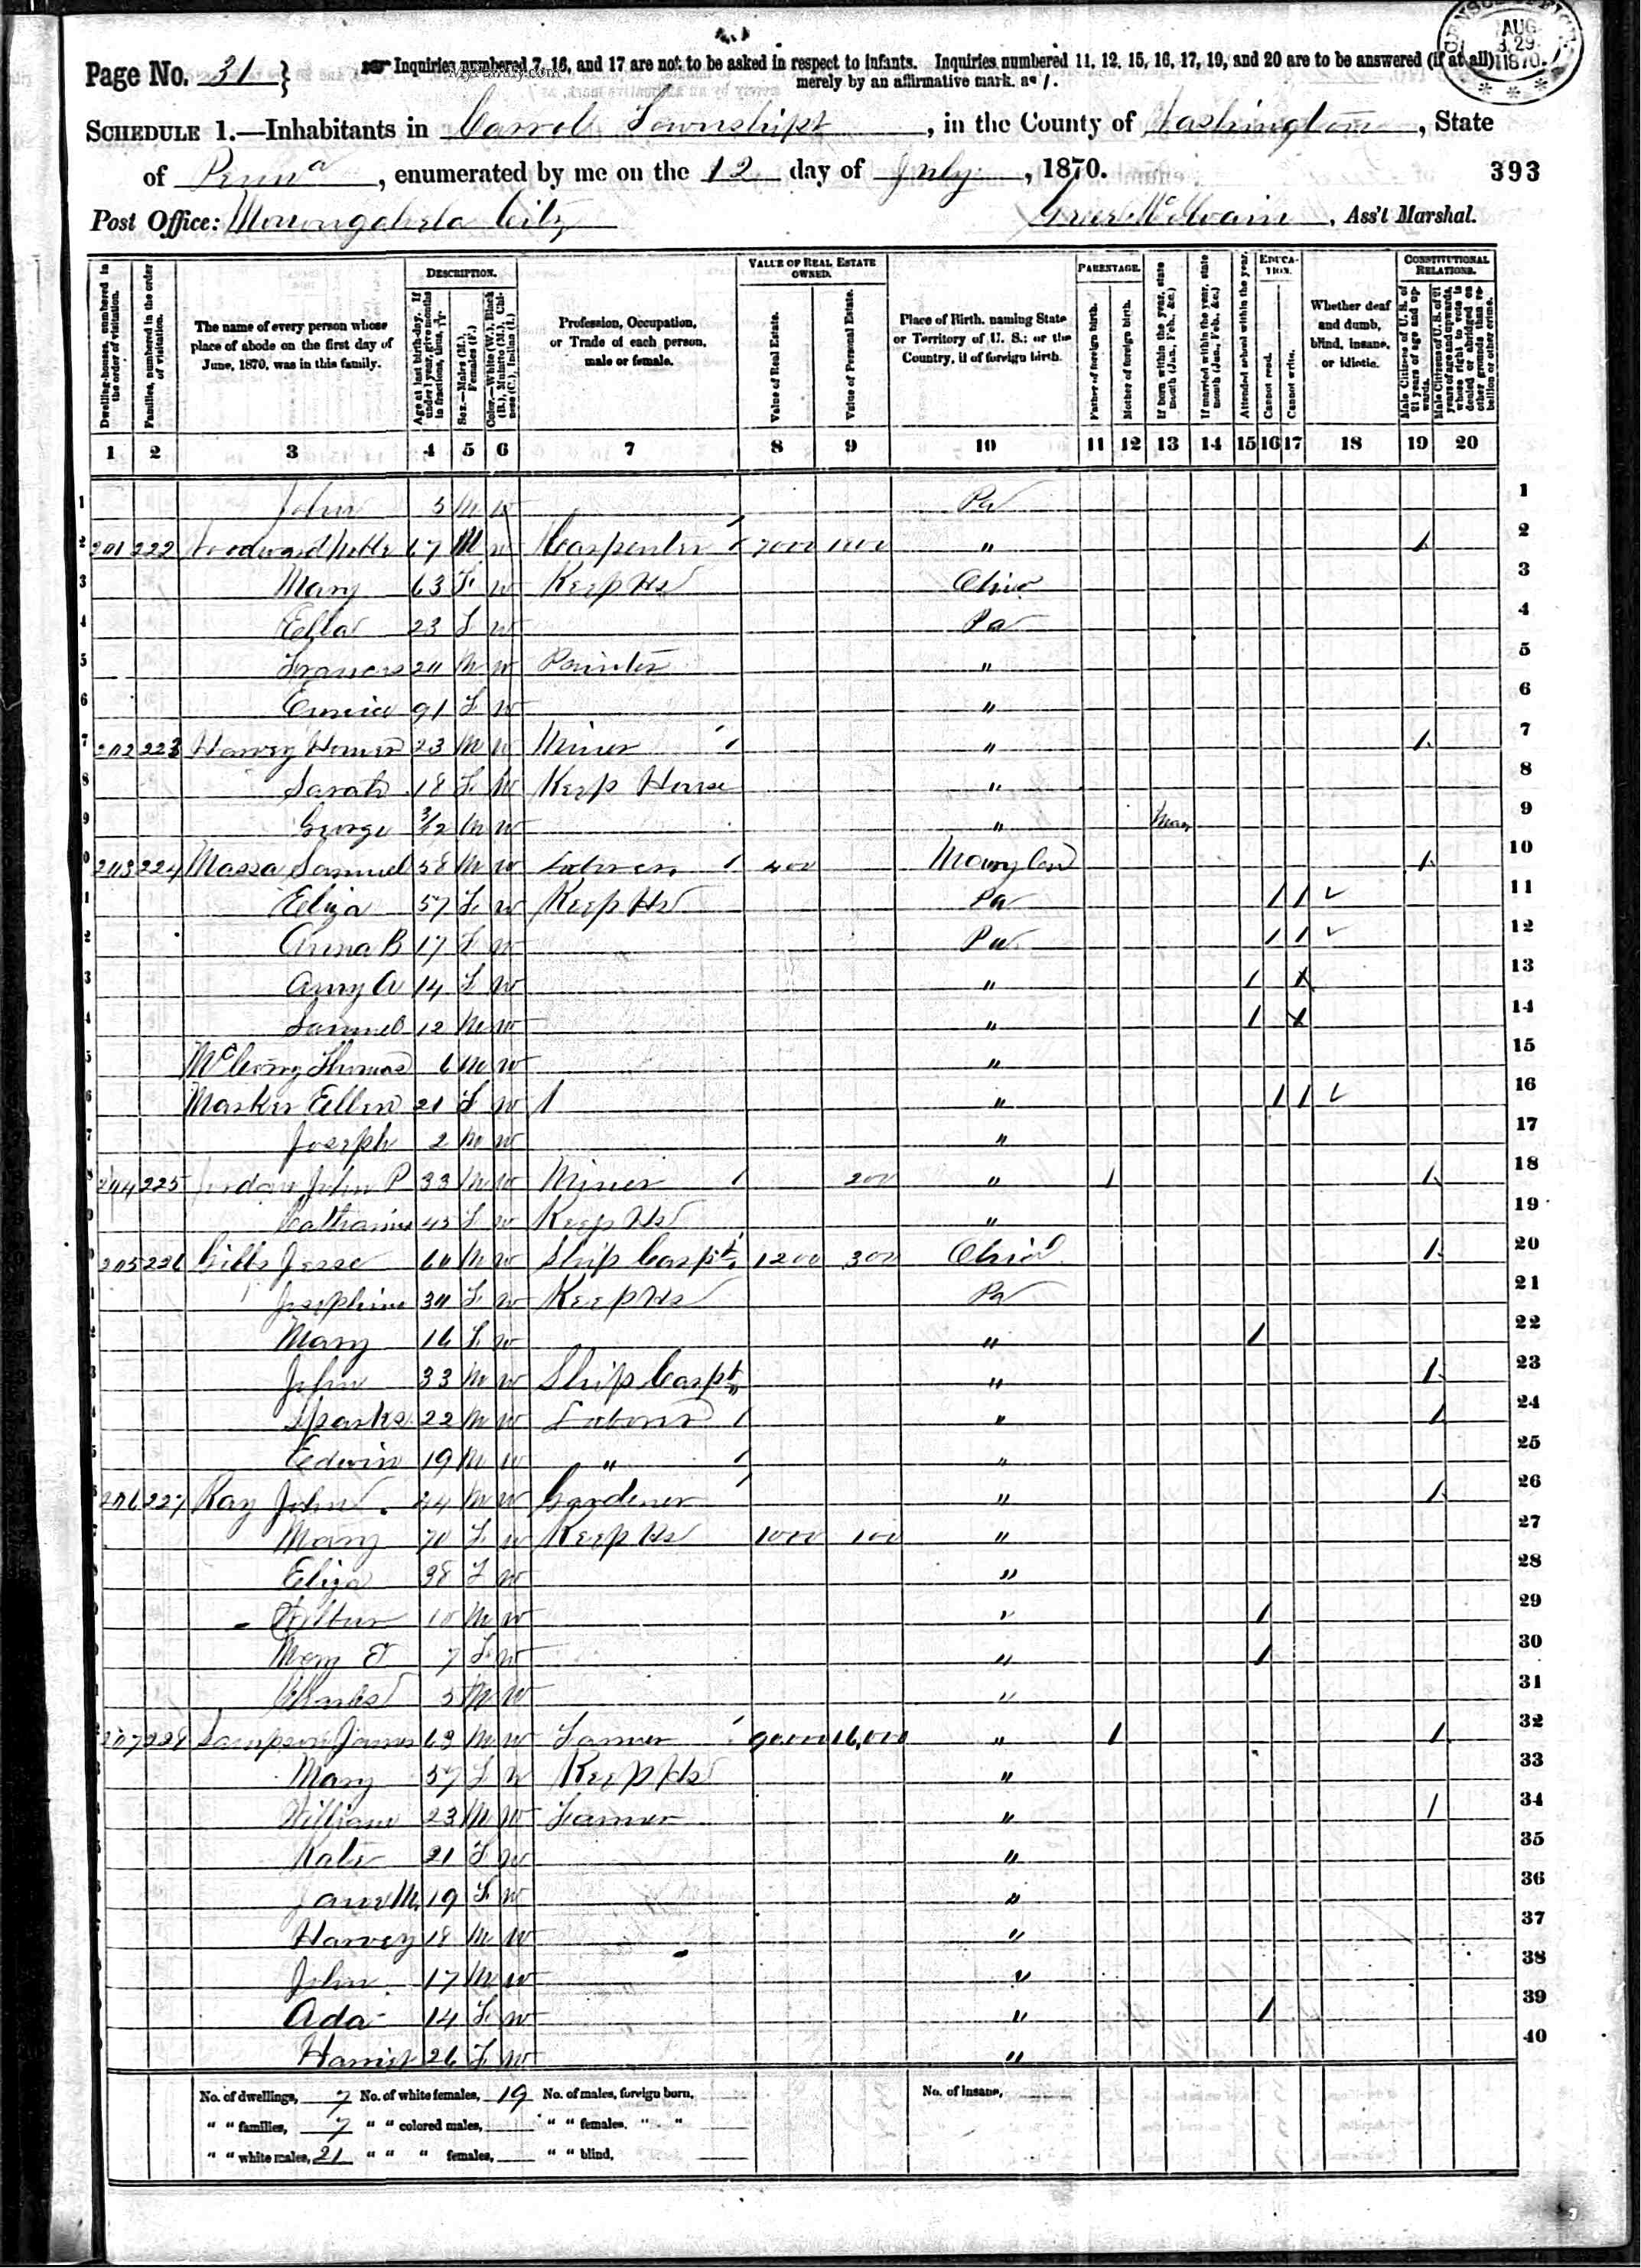 Page No. 31 } Inquiries numbered 7, 16, and 17 are not to be asked in respect to infants. Inquiries numbered 11, 12, 15, 16, 17, 19, and 20 are to be answered (if at all)
merely by an affirmative mark, as /.
AUG 29 1870
SCHEDULE 1.—Inhabitants in Carroll Township, in the County of Washington, State
of Penna, enumerated by me on the 12 day of July, 1870. 393
Post Office: Monongahela City Greer McIlvain, Ass't Marshal.
Dwelling-houses, numbered in the order of visitation.
Families, numbered in the order of visitation.
The name of every person whose place of abode on the first day of June, 1870, was in this family.
DESCRIPTION.
Age at last birth-day. If under 1 year, give months in fractions, thus, 3/12
Sex.—Males (M.), Females (F.)
Color.—White (W.), Black (B.), Mulatto (M.), Chinese (C.), Indian (I.)
Profession, Occupation, or Trade of each person, male or female.
VALUE OF REAL ESTATE OWNED.
Value of Real Estate.
Value of Personal Estate.
Place of Birth, naming State or Territory of U. S.; or the Country, if of foreign birth.
PARENTAGE.
Father of foreign birth.
Mother of foreign birth.
If born within the year, state month (Jan., Feb., &c.)
If married within the year, state month (Jan., Feb., &c.)
EDUCATION.
Attended school within the year.
Cannot read.
Cannot write.
Whether deaf and dumb, blind, insane, or idiotic.
CONSTITUTIONAL RELATIONS.
Male Citizens of U. S. of 21 years of age and upwards.
Male Citizens of U. S. of 21 years of age and upwards, whose right to vote is denied or abridged on other grounds than rebellion or other crime.
1 2 3 4 5 6 7 8 9 10 11 12 13 14 15 16 17 18 19 20
1 John 5 M W Pa 1
201 222 Woodward 67 M W Carpenter 7000 1000 " / 2
3 Mary 63 F W Keep Hs Ohio 3
4 Ella 23 F W Pa 4
5 Francis 20 M W Painter " 5
6 91 F W " 6
202 223 Harvey Homer 23 M W Miner " / 7
8 Sarah 18 F W Keep House " 8
9 George 3/12 M W " Mar 9
203 224 Massa Samuel 58 M W Laborer 400 Maryland / 10
Eliza 57 F W Keep Hs Pa / / 11
Anna B 17 F W Pa / / 12
Amy A 14 F W " / / 13
Samuel 12 M W " / / 14
Thomas 6 M W " 15
Marker Ellen 21 F W " / / 16
Joseph 2 M W " 17
204 225 Jordan John P 33 M W Miner 200 " / / 18
Catharine 45 F W Keep Hs " 19
205 226 Gibbs Jesse 60 M W Ship Carpt 1200 300 Ohio / 20
Josephine 30 F W Keep Hs Pa 21
Mary 16 F W " / 22
John 33 M W Ship Carpt " / 23
Sparks 22 M W Laborer " / 24
Edwin 19 M W " " 25
206 227 Ray John 44 M W Gardener " / 26
Mary 70 F W Keep Hs 1000 100 " 27
Eliza 38 F W " 28
Wilbur 10 M W " / 29
Mary E 7 F W " / 30
Charles 5 M W " 31
207 228 Sampson James 63 M W Farmer 90000 16,000 " / / 32
Mary 57 F W Keep Hs " 33
William 23 M W Farmer " / 34
Kate 21 F W " 35
Jane M. 19 F W " 36
Harvey 18 M W " 37
John 17 M W " 38
Ada 14 F W " / 39
Harriet 26 F W " 40
No. of dwellings, 7 No. of white females, 19 No. of males, foreign born, No. of insane,
" " families, 7 " " colored males, " " females, " "
" " white males, 21 " " " females, " " blind,